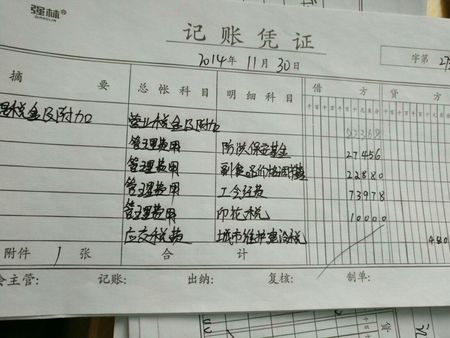 强林
QIANGLIN
记账凭证
2014年 11月 30日
字第 27
摘 要 总帐科目 明细科目 借方 贷方
税金及附加 营业税金及附加
管理费用 防洪保安基金 27456
管理费用 副食品价格调节基 22880
管理费用 工会经费 73978
管理费用 印花税 10000
应交税费 城市维护建设税 480
附件 1 张 合 计
会主管: 记账: 出纳: 复核: 制单: